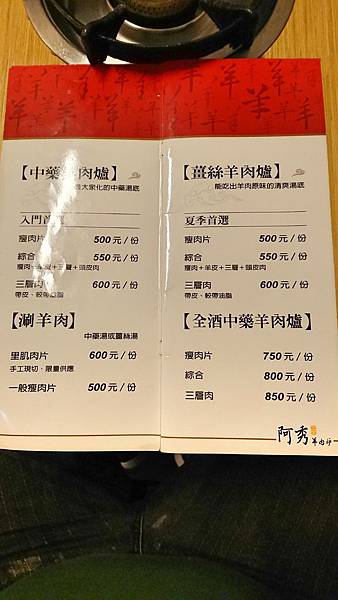 【中藥羊肉爐】
最大家化的中藥湯底
入門首選
瘦肉片 500元/份
綜合 550元/份
瘦肉+羊皮+三層+頭皮肉
三層肉 600元/份
帶皮、較帶油脂
【涮羊肉】
中藥湯或薑絲湯
里肌肉片 600元/份
手工現切、限量供應
一般瘦肉片 500元/份
【薑絲羊肉爐】
能吃出羊肉原味的清爽湯底
夏季首選
瘦肉片 500元/份
綜合 550元/份
瘦肉+羊皮+三層+頭皮肉
三層肉 600元/份
帶皮、較帶油脂
【全酒中藥羊肉爐】
瘦肉片 750元/份
綜合 800元/份
三層肉 850元/份
阿秀
羊肉爐